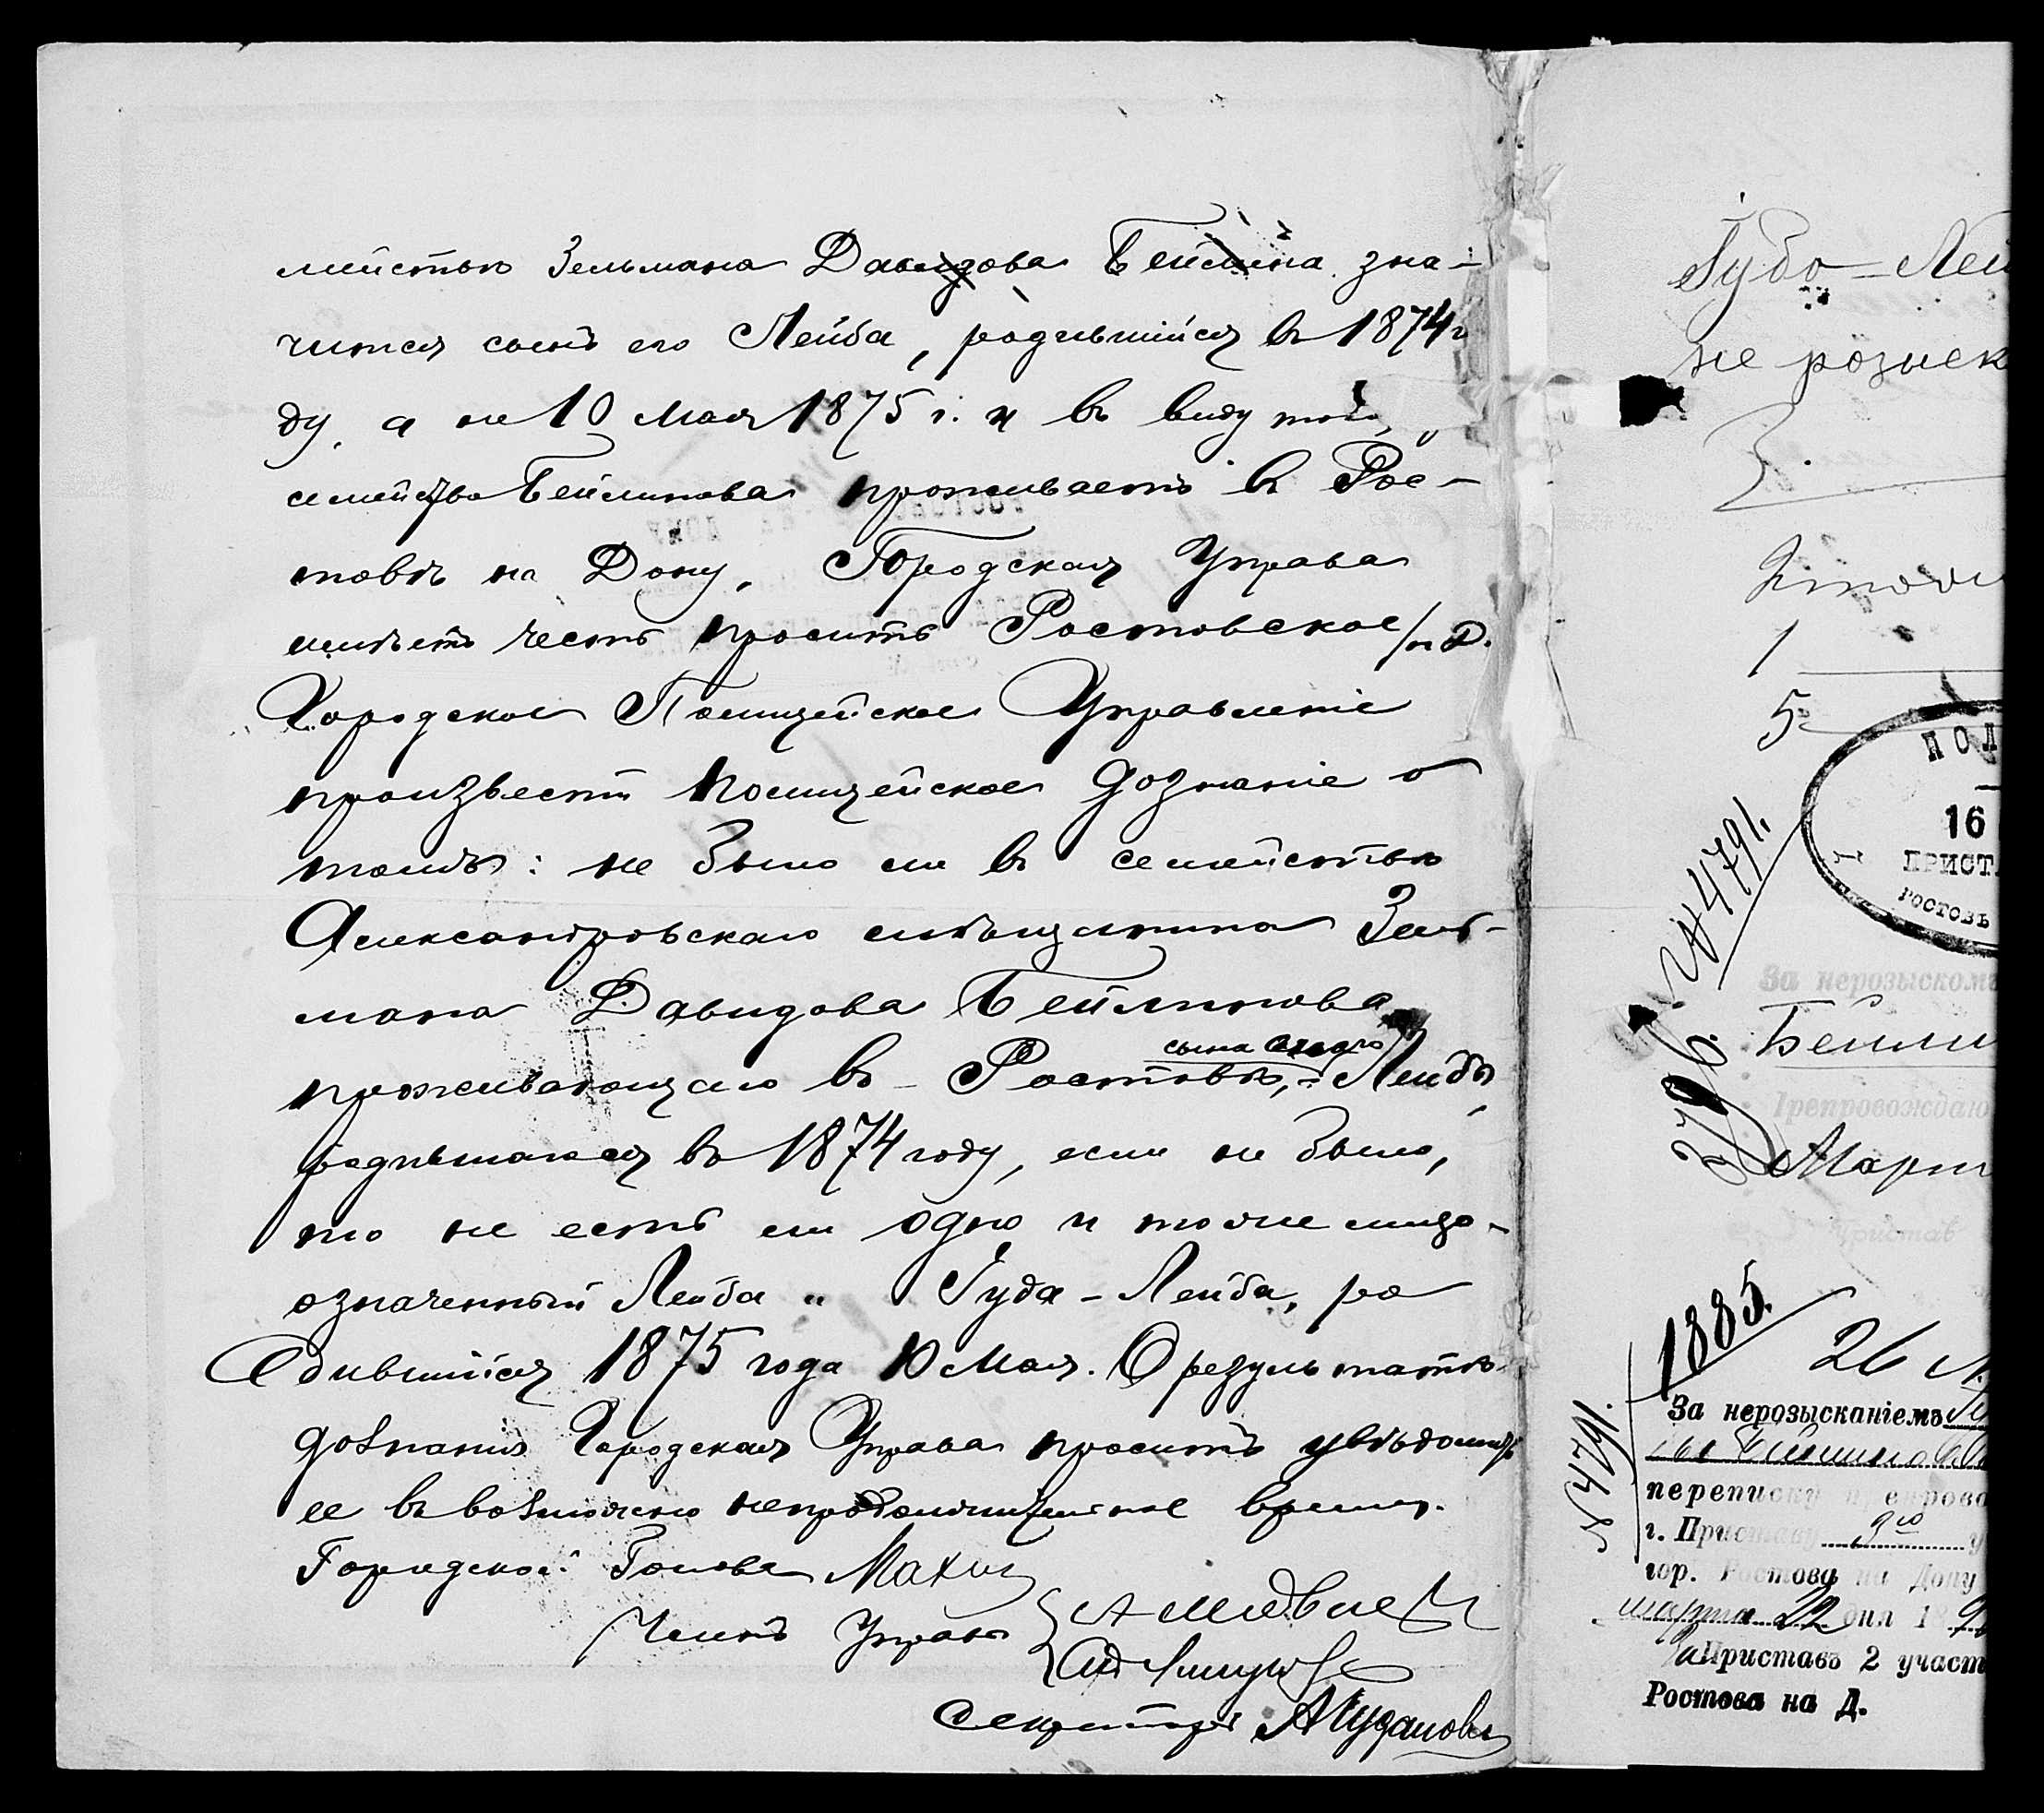 мействѣ Зельмана Давидова Бейлина зна-
чится сынъ его Лейба, родившійся въ 1874 г
ду, а не 10 Мая 1875 г. и въ виду того,
семейство Бейлинова проживаетъ въ Рос-
товѣ на Дону, Городская Управа
имѣетъ честь просить Ростовское н/Д.
Городское Полицейское Управленіе
произвести полицейское дознаніе о
томъ: не было ли въ семействѣ
Александровскаго мѣщанина Зель-
мана Давидова Бейлинова
сына
проживающаго въ Ростовѣ, Лейбы
родившагося въ 1874 году, если не было,
то не есть ли одно и тоже лицо
означенный Лейба и Гуда-Лейба, ро
дившійся 1875 года 10 Мая. О результатѣ
дознанія Городская Управа проситъ увѣдомить
ее въ возможно непродолжительное время.
Городской Голова
Членъ Управы
Секретарь
Гудо-Лей
не розыск
1
5
ПОЛ
16
ПРИСТ
РОСТОВЪ
№ 4791.
За нерозыскомъ
Бейли
Препровождаю
Марта
Приставъ
1885.
26
№ 4791.
За нерозысканіемъ
Бейлинова
переписку препрово
г. Приставу 3го у
гор. Ростова на Дону
марта 22 дня 189
Приставъ 2 участ
Ростова на Д.